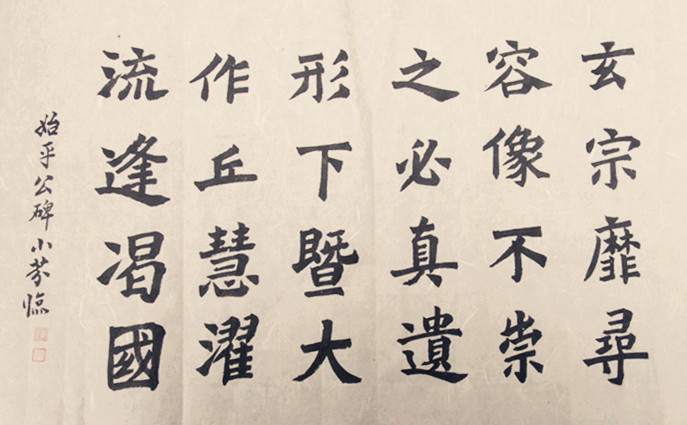 玄宗靡尋
容像不崇
之必真遺
形下暨大
作丘慧濯
流逢曷國
始平公碑小芬臨